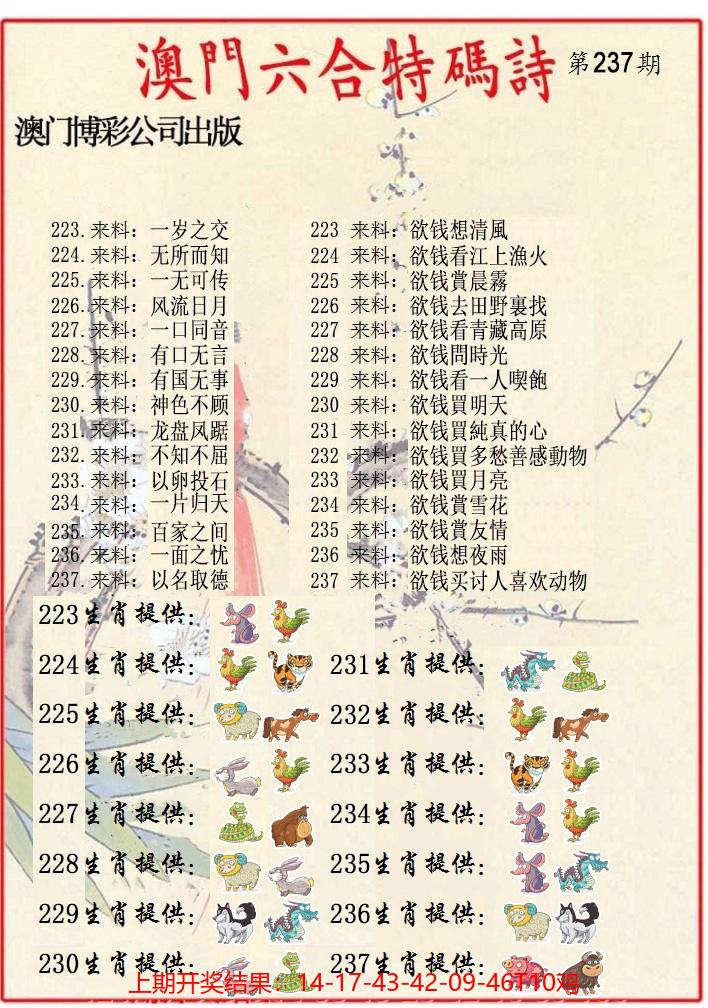 澳門六合特碼詩 第237期
澳门博彩公司出版
223.来料：一岁之交
224.来料：无所而知
225.来料：一无可传
226.来料：风流日月
227.来料：一口同音
228.来料：有口无言
229.来料：有国无事
230.来料：神色不顾
231.来料：龙盘凤踞
232.来料：不知不屈
233.来料：以卵投石
234.来料：一片归天
235.来料：百家之间
236.来料：一面之忧
237.来料：以名取德
223 来料：欲钱想清風
224 来料：欲钱看江上漁火
225 来料：欲钱賞晨霧
226 来料：欲钱去田野裏找
227 来料：欲钱看青藏高原
228 来料：欲钱問時光
229 来料：欲钱看一人喫飽
230 来料：欲钱買明天
231 来料：欲钱買純真的心
232 来料：欲钱買多愁善感動物
233 来料：欲钱買月亮
234 来料：欲钱賞雪花
235 来料：欲钱賞友情
236 来料：欲钱想夜雨
237 来料：欲钱买讨人喜欢动物
223生肖提供：
224生肖提供：
225生肖提供：
226生肖提供：
227生肖提供：
228生肖提供：
229生肖提供：
230生肖提供：
231生肖提供：
232生肖提供：
233生肖提供：
234生肖提供：
235生肖提供：
236生肖提供：
237生肖提供：
上期开奖结果：14-17-43-42-09-46T10鸡